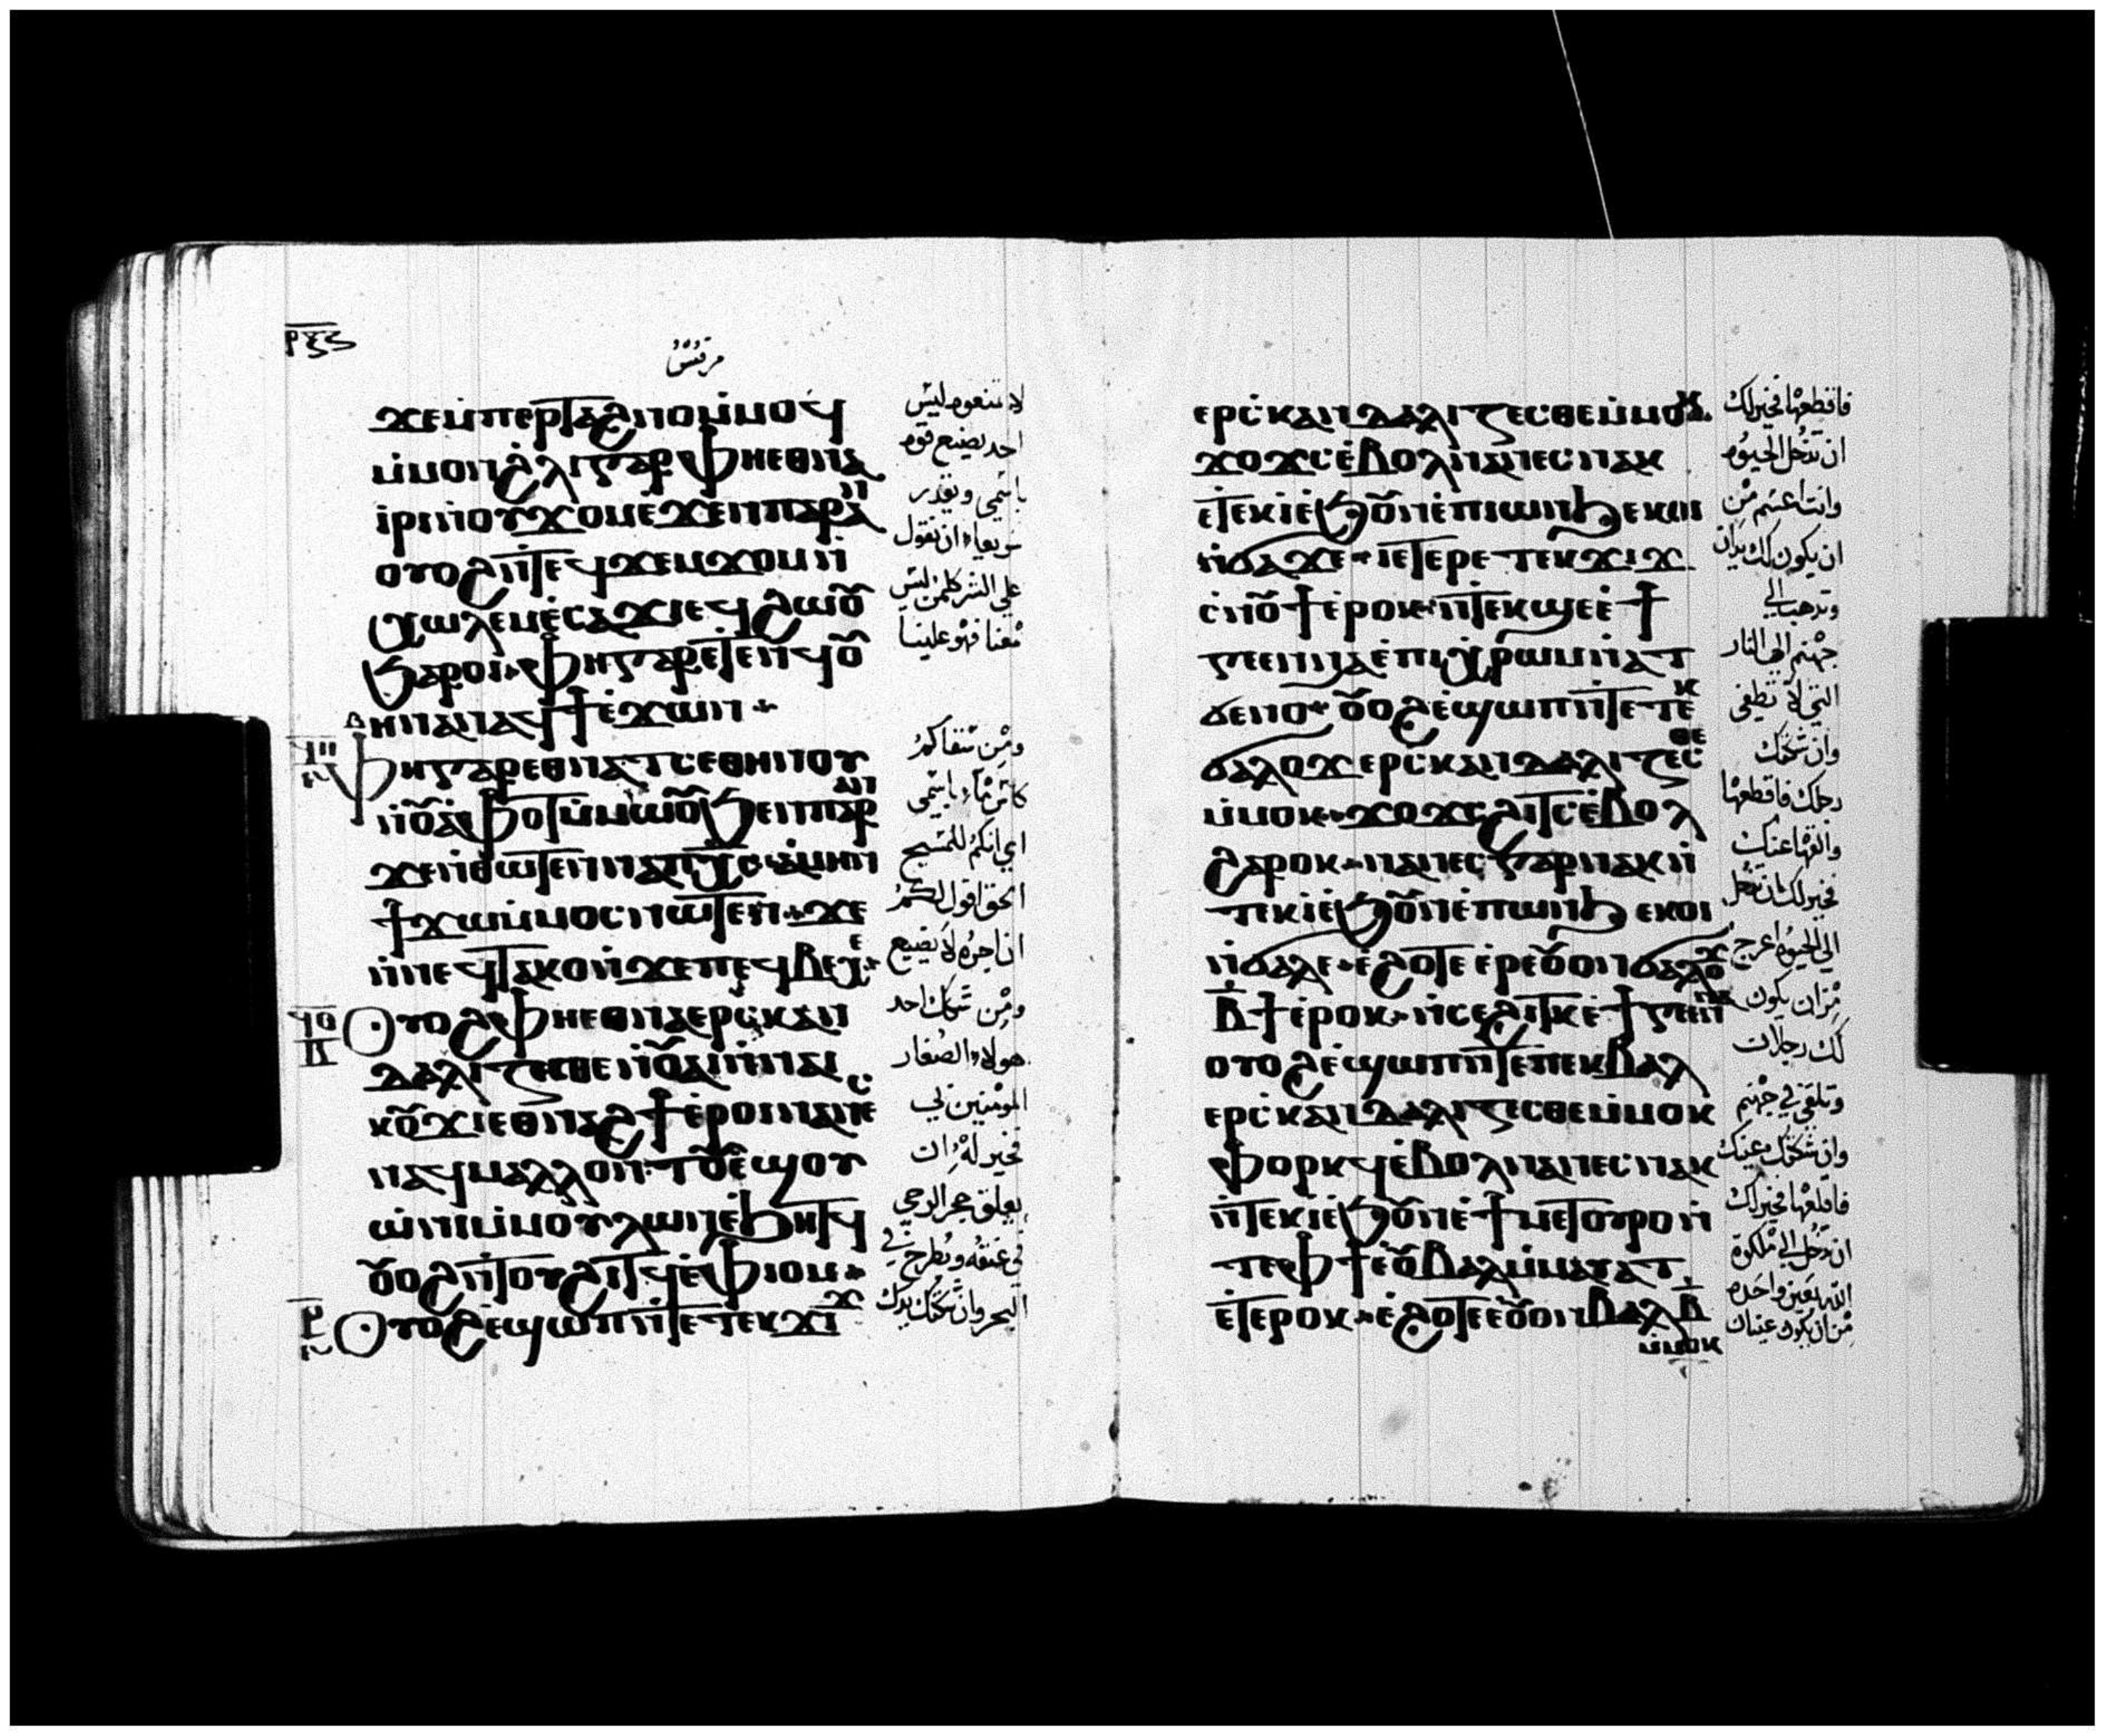 ⲣⲝⲋ
مرقس
ϫⲉⲙⲡⲉⲣⲧⲁϩⲛⲟⲙⲙⲟϥ
ⲙⲙⲟⲛϩⲗⲓⲅⲁⲣⲫⲏⲉⲑⲛⲁ
ⲓⲣⲓⲛⲟⲩϫⲟⲙⲉϫⲉⲛⲡⲁⲣⲁⲛ
ⲟⲩⲟϩⲛⲧⲉϥϫⲉⲙϫⲟⲙⲛ
ⲭⲱⲗⲉⲙⲉⲥⲁϫⲓⲉϥϩⲱⲟⲩ
ϧⲁⲣⲟⲓ ⲫⲏⲅⲁⲣⲉⲧⲉⲛϥⲟⲩ
ⲏⲛⲁⲛⲁϥϯⲉϫⲱⲛ
ⲫⲏⲅⲁⲣⲉⲑⲛⲁⲧⲥⲉⲑⲏⲛⲟⲩ
ⲛⲟⲩⲁⲫⲟⲧⲙⲙⲱⲟⲩϧⲉⲛⲡⲁⲣⲁⲛ
ϫⲉⲛⲑⲱⲧⲉⲛⲛⲁⲡⲭⲥ ⲁⲙⲏⲛ
ϯϫⲱⲙⲙⲟⲥⲛⲱⲧⲉⲛ ϫⲉ
ⲛⲛⲉϥⲧⲁⲕⲟⲛϫⲉⲡⲉϥⲃⲉⲭⲉ
ⲟⲩⲟϩⲫⲏⲉⲑⲛⲁⲉⲣⲥⲕⲁⲛ
ⲇⲁⲗⲓⲍⲉⲥⲑⲉⲛⲟⲩⲁⲓⲛⲛⲁⲓ
ⲕⲟⲩϫⲓⲉⲑⲛⲁϩϯⲉⲣⲟⲓⲛⲁⲛⲉⲥ
ⲛⲁϥⲙⲁⲗⲗⲟⲛⲧⲟⲩⲉϣⲟⲩ
ⲱⲛⲓⲙⲙⲟⲩⲗⲱⲛⲉϧⲏⲧϥ
ⲟⲩⲟϩⲛⲧⲟⲩϩⲓⲧϥⲉⲫⲓⲟⲙ
ⲟⲩⲟϩⲉϣⲱⲡⲛⲧⲉⲧⲉⲕϫⲓϫ
لا تمنعوه ليس
احد يصنع قوه
باسمي ويقدر
سريعا ان يقول
علي الشر كلمن ليس
معنا فهو علينا
ومن سقاكم
كاس ماء باسمي
اي انكم للمسيح
الحق اقول لكم
ان اجره لا يضيع
ومن شكك احد
هولاء الصغار
المومنين بي
فخير له ان
يعلق حجر الرحي
في عنقه ويطرح في
البحر وان شككتك يدك
ⲉⲣⲥⲕⲁⲛⲇⲁⲗⲓⲍⲉⲥⲑⲉⲙⲙⲟⲕ
ϫⲟϫⲥⲉⲃⲟⲗⲛⲁⲛⲉⲥⲛⲁⲕ
ⲉⲧⲉⲕⲓⲉϧⲟⲩⲛⲉⲡⲓⲱⲛϧⲉⲕⲟⲓ
ⲛϭⲁϫⲉ ⲓⲉⲧⲉⲣⲉⲧⲉⲕϫⲓϫ
ⲥⲛⲟⲩϯⲉⲣⲟⲕ ⲛⲧⲉⲕϣⲉⲉϯ
ⲅⲉⲉⲛⲛⲁⲉⲡⲓⲭⲣⲱⲙⲛⲁⲧ
ϭⲉⲛⲟ ⲟⲩⲟϩⲉϣⲱⲡⲛⲧⲉⲧⲉⲕ
ϭⲁⲗⲟϫⲉⲣⲥⲕⲁⲛⲇⲁⲗⲓⲍⲉⲥⲑⲉ
ⲙⲙⲟⲕ ϫⲟϫⲥϩⲓⲧⲥⲉⲃⲟⲗ
ϩⲁⲣⲟⲕ ⲛⲁⲛⲉⲥⲅⲁⲣⲛⲁⲕⲛ
ⲧⲉⲕⲓⲉϧⲟⲩⲛⲉⲡⲱⲛϧⲉⲕⲟⲓ
ⲛϭⲁⲗⲉ ⲉϩⲟⲧⲉⲉⲣⲉⲟⲩⲟⲛϭⲁⲗⲟϫ
ⲃϯⲉⲣⲟⲕ ⲛⲥⲉϩⲓⲧⲕⲉϯⲅⲉⲛⲛⲁ
ⲟⲩⲟϩⲉϣⲱⲡⲛⲧⲉⲡⲉⲕⲃⲁⲗ
ⲉⲣⲥⲕⲁⲛⲇⲁⲗⲓⲍⲉⲥⲑⲉⲙⲙⲟⲕ
ⲫⲟⲣⲕϥⲉⲃⲟⲗⲛⲁⲛⲉⲥⲛⲁⲕ
ⲛⲧⲉⲕⲓⲉϧⲟⲩⲛⲉϯⲙⲉⲧⲟⲩⲣⲟⲛ
ⲧⲉⲫϯⲉⲟⲩⲃⲁⲗⲙⲙⲁⲩⲁⲧ
ⲉⲧⲉⲣⲟⲕ ⲉϩⲟⲧⲉⲉⲟⲩⲟⲛⲃⲁⲗⲃ
ⲙⲙⲟⲕ
فاقطعها فخير لك
ان تدخل الحيوه
وانت اعسم من
ان يكون لك يدان
وتذهب الي
جهنم الي النار
التي لا تطفي
وان شككتك
رجلك فاقطعها
والقها عنك
فخير لك ان تدخل
الي الحيوه اعرج
من ان يكون
لك رجلان
وتلقي في جهنم
وان شككتك عينك
فاقلعها فخير لك
ان تدخل الي ملكوة
الله بعين واحده
من ان يكون عينان